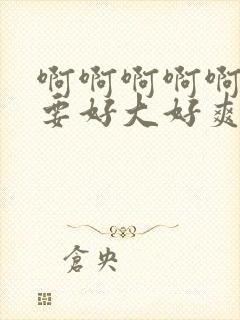 啊啊啊啊啊
要好大好爽
倉央